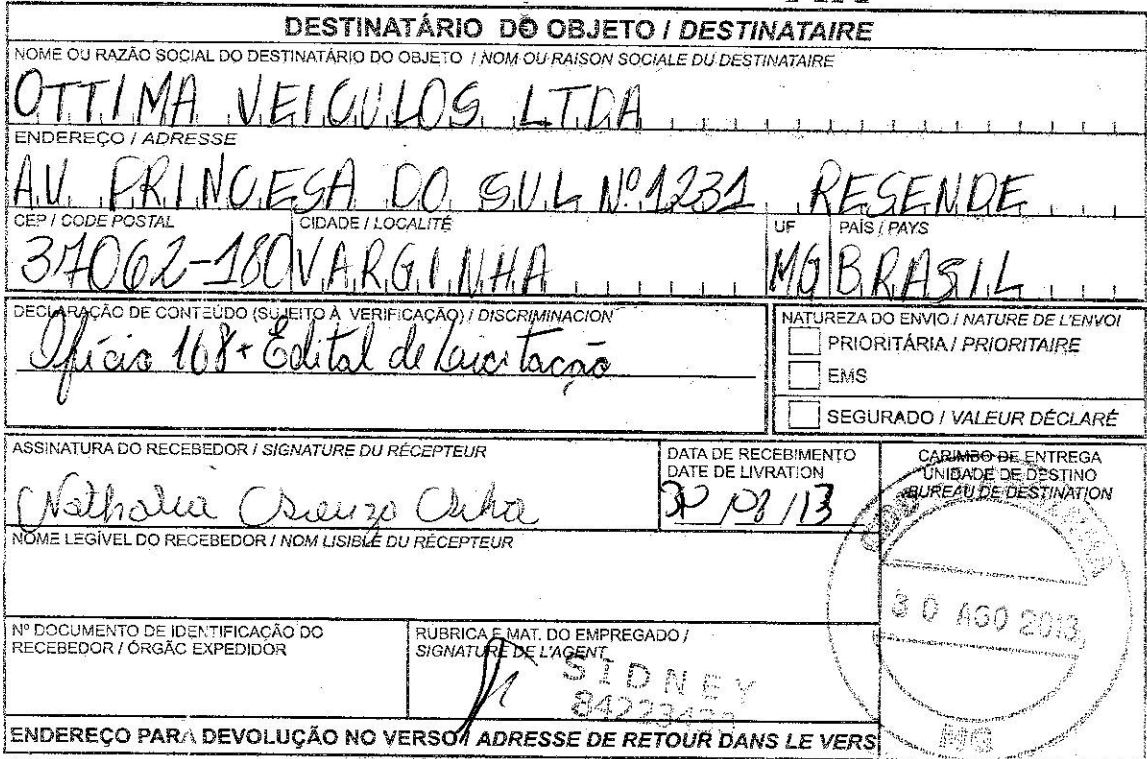 DESTINATÁRIO DO OBJETO / DESTINATAIRE
NOME OU RAZÃO SOCIAL DO DESTINATÁRIO DO OBJETO / NOM OU RAISON SOCIALE DU DESTINATAIRE
OTTIMA VEICULOS LTDA
ENDEREÇO / ADRESSE
AV. PRINCESA DO SUL Nº 1231 RESENDE
CEP / CODE POSTAL CIDADE / LOCALITÉ UF PAÍS / PAYS
37062-180 VARGINHA MG BRASIL
DECLARAÇÃO DE CONTEÚDO (SUJEITO À VERIFICAÇÃO) / DISCRIMINACION NATUREZA DO ENVIO / NATURE DE L'ENVOI
Ofício 168 + Edital de Licitação
PRIORITÁRIA / PRIORITAIRE
EMS
SEGURADO / VALEUR DÉCLARÉ
ASSINATURA DO RECEBEDOR / SIGNATURE DU RÉCEPTEUR
Nathalia
DATA DE RECEBIMENTO
DATE DE LIVRATION
30/08/13
CARIMBO DE ENTREGA
UNIDADE DE DESTINO
BUREAU DE DESTINATION
30 AGO 2013
MG
NOME LEGÍVEL DO RECEBEDOR / NOM LISIBLE DU RÉCEPTEUR
Nº DOCUMENTO DE IDENTIFICAÇÃO DO
RECEBEDOR / ÓRGÃO EXPEDIDOR
RUBRICA E MAT. DO EMPREGADO /
SIGNATURE DE L'AGENT
SIDNEY
ENDEREÇO PARA DEVOLUÇÃO NO VERSO / ADRESSE DE RETOUR DANS LE VERS